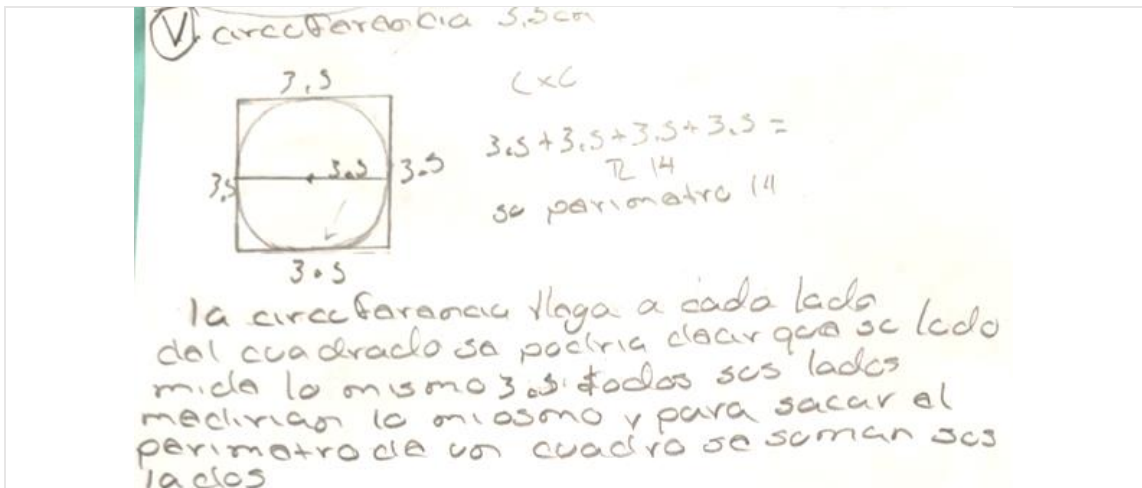 V circcferencia 3.5cm
3.5
CxC
3.5+3.5+3.5+3.5=
3.5 3.5 3.5
R 14
su perimetro 14
3.5
la circcferencia llega a cada lado
del cuadrado se podria decir que su lado
mide lo mismo 3.5 todos sus lados
medirian lo miosmo y para sacar el
perimetro de un cuadro se suman sus
lados